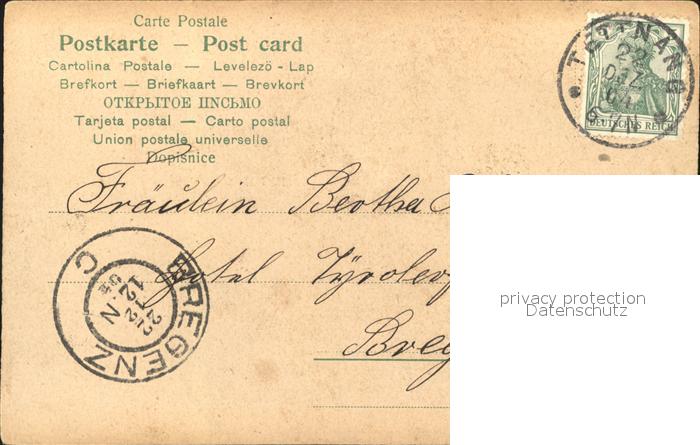 Carte Postale
Postkarte — Post card
Cartolina Postale — Levelezö - Lap
Brefkort — Briefkaart — Brevkort
ОТКРЫТОЕ ПИСЬМО
Tarjeta postal — Carto postal
Union postale universelle
Dopisnice
TETTNANG
22
DEZ
04
6-7N
DEUTSCHES REICH
Fräulein Bertha
Hotel Tyroler
Breg
BREGENZ
C
22
12
12 N
04
privacy protection
Datenschutz